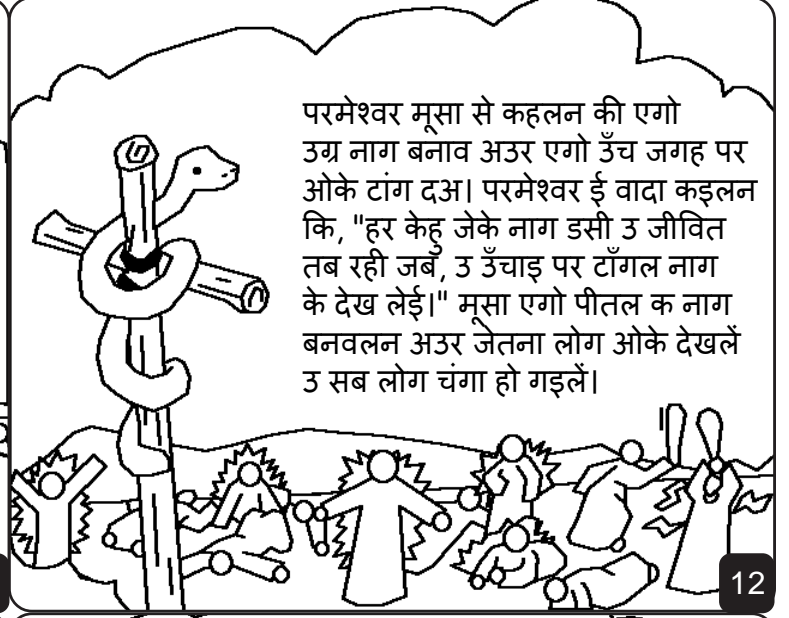 परमेश्वर मूसा से कहलन की एगो
उग्र नाग बनाव अउर एगो उँच जगह पर
ओके टांग दअ। परमेश्वर ई वादा कइलन
कि, "हर केहु जेके नाग डसी उ जीवित
तब रही जब, उ उँचाइ पर टाँगल नाग
के देख लेई।" मूसा एगो पीतल क नाग
बनवलन अउर जेतना लोग ओके देखलें
उ सब लोग चंगा हो गइलें।
12